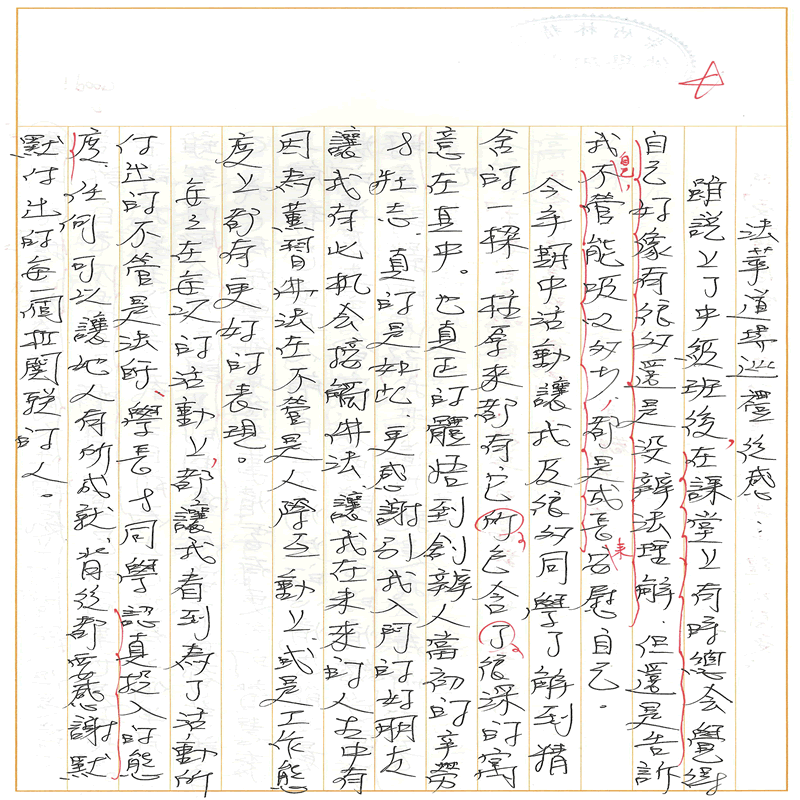 法華道場巡禮後感：
雖說上了中級班後，在課堂上有時總會覺得
自己好像有很多還是沒辦法理解．但還是告訴
我自己，不管能吸收多少，都是成長來安慰自己。
今年期中活動讓我及很多同學了解到精
舍的一樑一柱拿來都有它所包含了很深的寓
意在其中。也真正的體悟到創辦人當初的辛勞
&壯志．真的是如此．更感謝引我入門的好朋友
讓我有此机会接觸佛法．讓我在未來的人生中有
因為薰習佛法在不管是人際互動上或是工作態
度上都有更好的表現。
每在每次的活動上，都讓我看到為了活動所
付出的不管是法師、學長&同學認真投入的態
度．任何可以讓他人有所成就．背後都要感謝默
默付出的每一個相關聯的人。